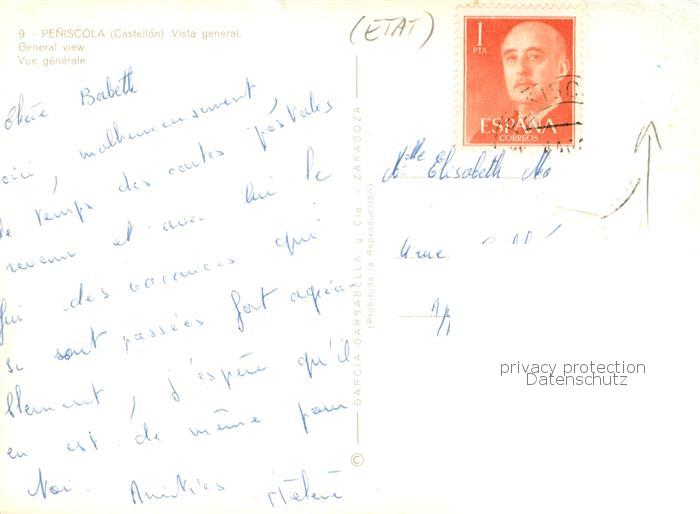 9 - PEÑISCOLA (Castellón) Vista general.
General view.
Vue générale
(ETAT)
1
PTA
ESPAÑA
CORREOS
Chère Babeth
oici, malheureusement,
le temps des cartes postales
revenu et avec lui le
fin des vacances qui
se sont passées fort agréa-
blement, j'espère qu'il
en est de même pour
toi. Amitiés Hélène
© GARCIA GARRABELLA y Cia. - ZARAGOZA
(Prohibida la Reproducción)
Mlle Elisabeth Mo
privacy protection
Datenschutz